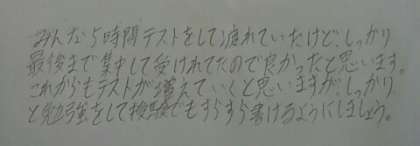 みんな5時間テストをして疲れていたけど、しっかり
最後まで集中して受けれてたので良かったと思います。
これからもテストが増えていくと思いますが、しっかり
と勉強をして検験でもすらすら書けるようにしましょう。